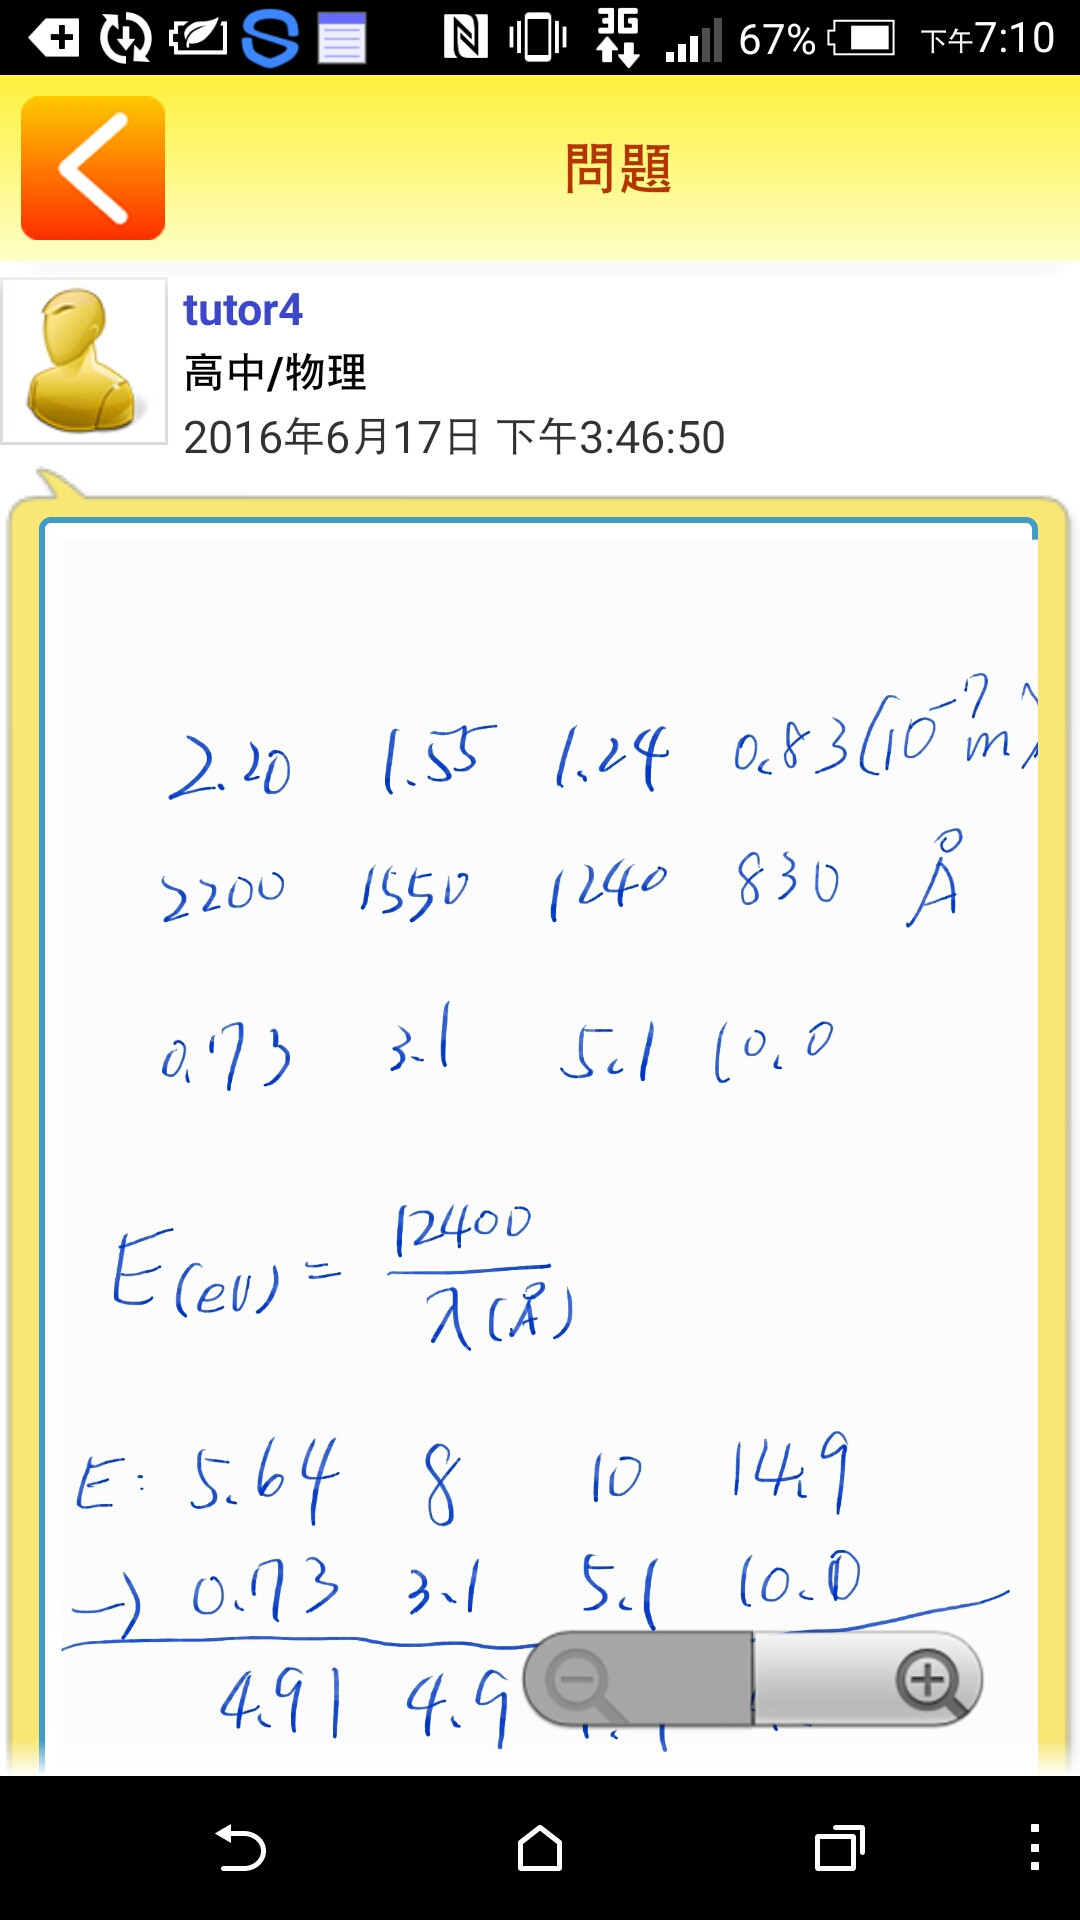 3G 67% 下午7:10
問題
tutor4
高中/物理
2016年6月17日 下午3:46:50
2.20 1.55 1.24 0.83(10⁻⁷m)
2200 1550 1240 830 Å
0.73 3.1 5.1 10.0
E(eV) = 12400 / λ(Å)
E: 5.64 8 10 14.9
-) 0.73 3.1 5.1 10.0
4.91 4.9